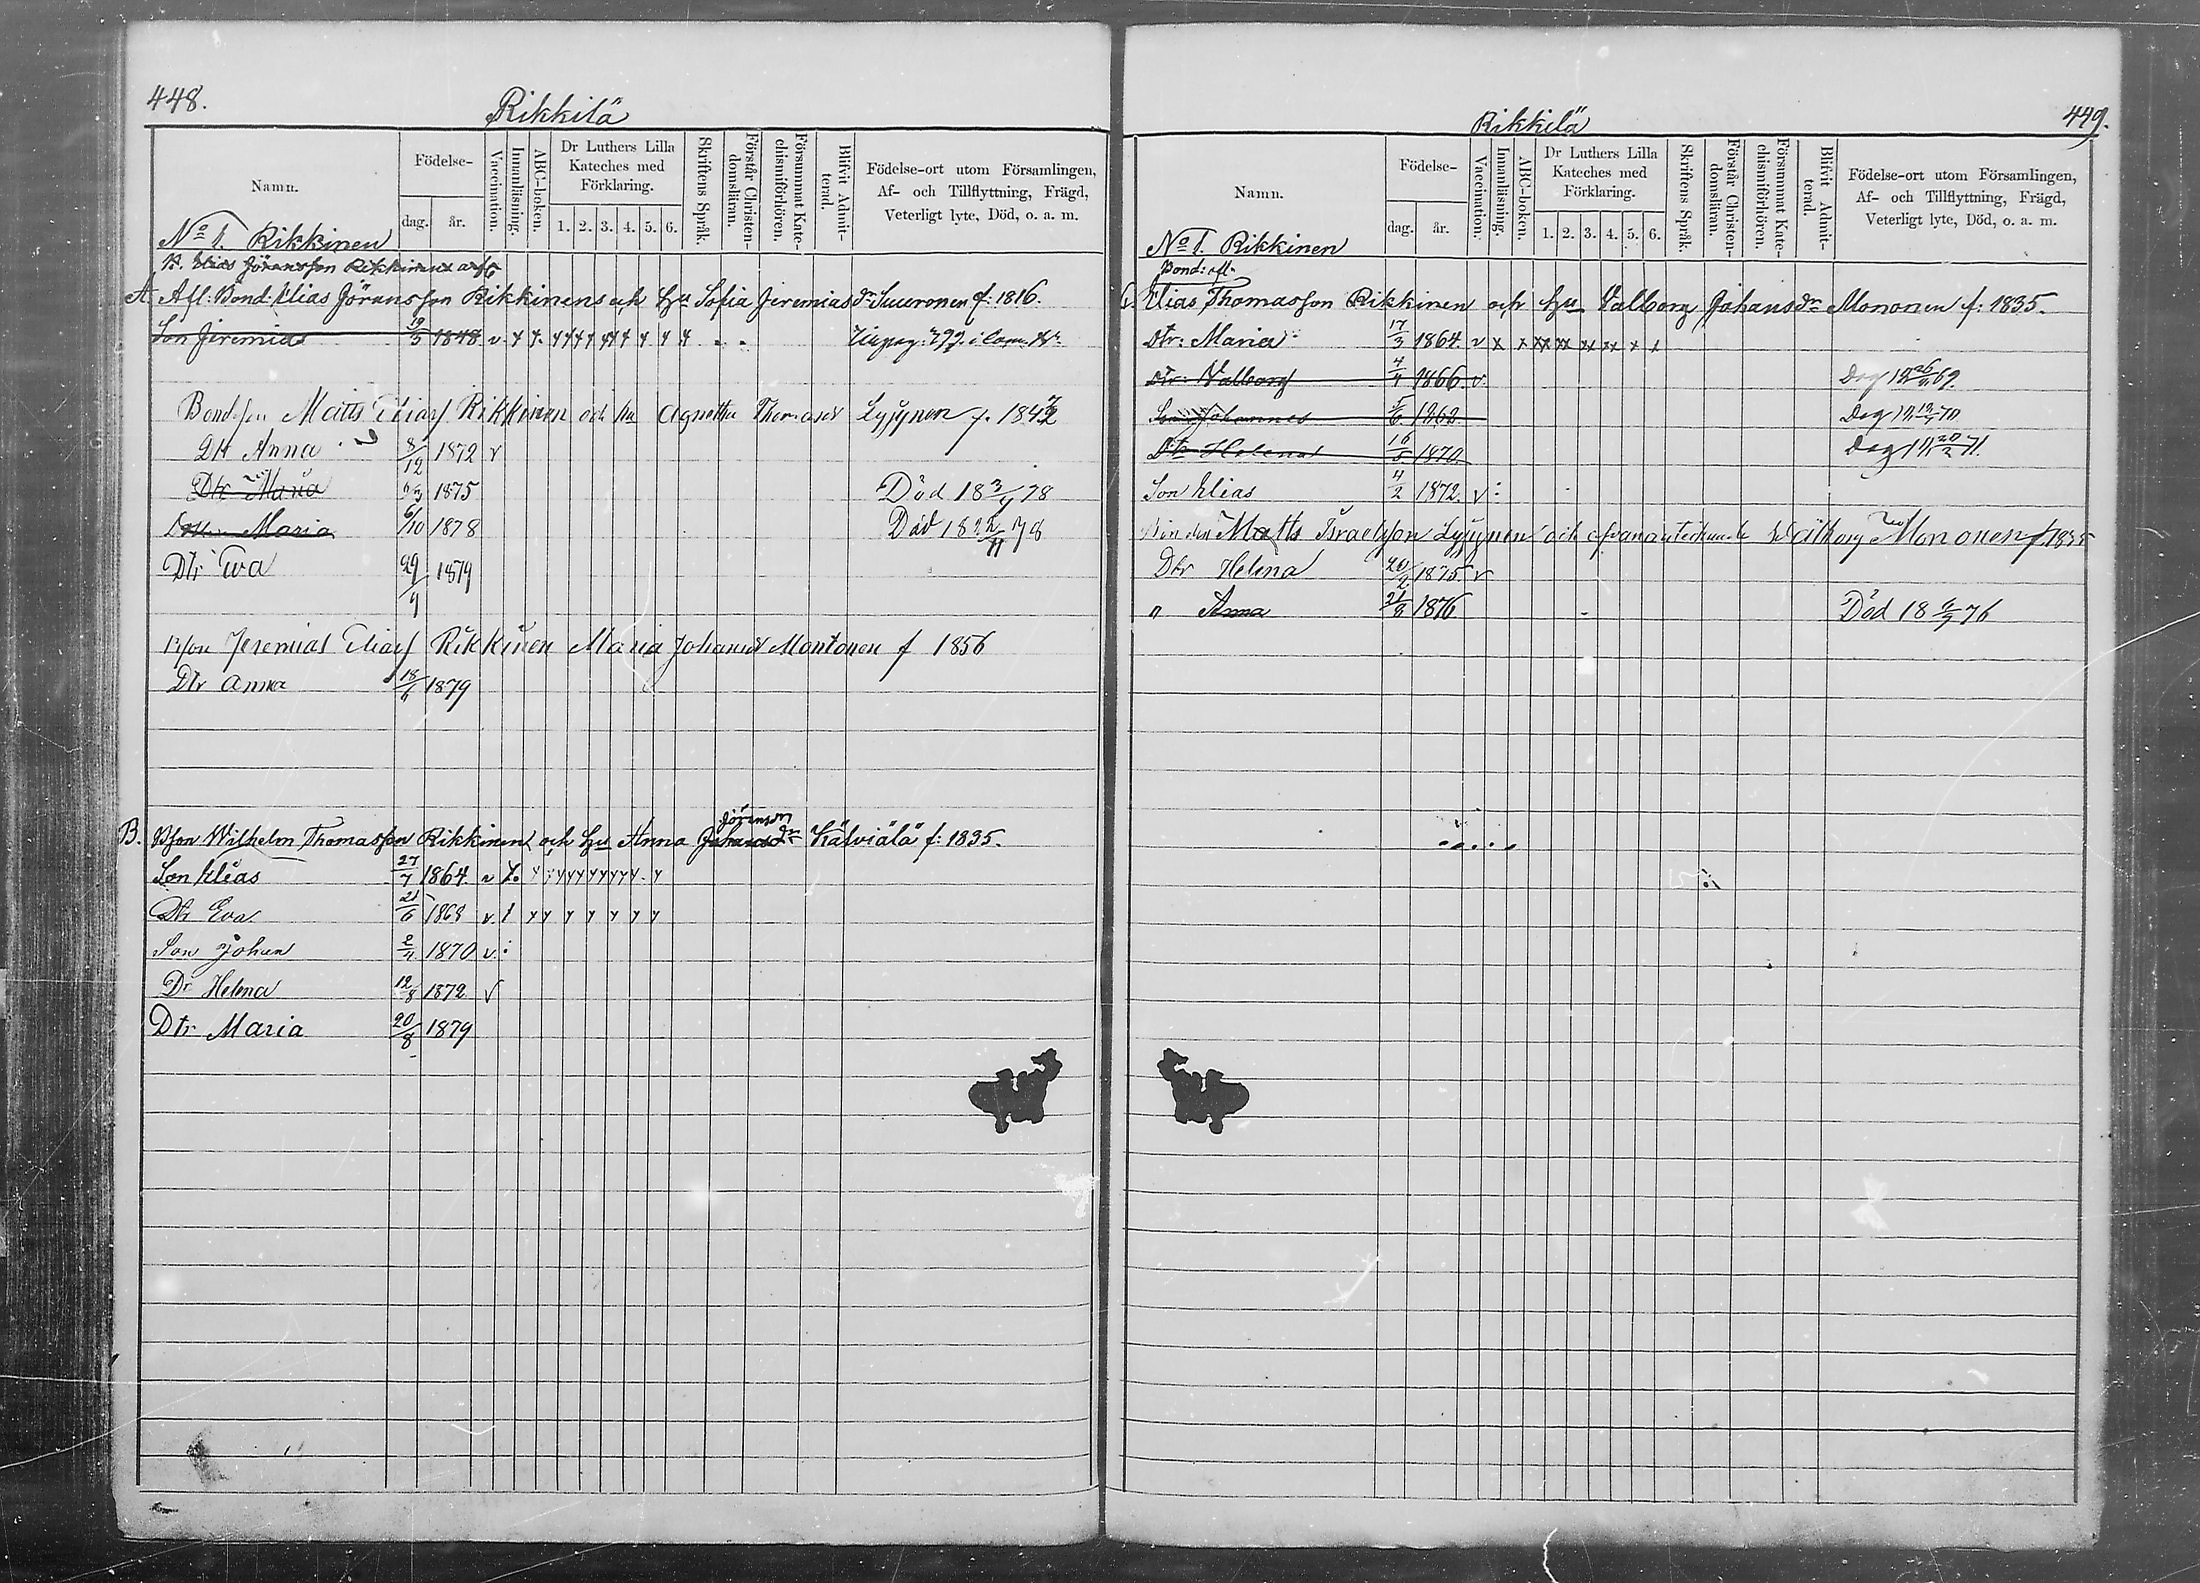 448.
Rikkilä
Namn.
Födelse-
dag.
år.
Vaccination.
Innanläsning.
ABC-boken.
Dr Luthers Lilla
Kateches med
Förklaring.
1. 2. 3. 4. 5. 6.
Skriftens Språk.
Förstår Christen-
domsläran.
Försummat Kate-
chismiförhören.
Blifvit Admit-
terad.
Födelse-ort utom Församlingen,
Af- och Tillflyttning, Frägd,
Veterligt lyte, Död, o. a. m.
No 1. Rikkinen
Elias Jöransson Rikkinens
A. Afl: Bond: Elias Jöransson Rikkinens och hu Sofia Jeremiasdr Suuronen f: 1816.
Son Jeremias 19/3 1848. v
Bondeson Matts Eliass Rikkinen och hu Agnetha Thomasdr Lyjynen f. 184
Dtr Anna 8/12 1872 v
Dtr Maria 1875 Död 18 3/4 78
Maria 6/10 1878 Död 18 22/11 78
Dtr Eva 29/4 1879
Jeremias Eliass Rikkinen Maria Johansdr Montonen f 1856
Dtr Anna 18/4 1879
Jöransdr
B. Bson Wilhelm Thomasson Rikkinen och hu Anna Johansdr Kälviälä f: 1835.
Son Elias 27/7 1864. v
Dtr Eva 21/6 1868 v.
Son Johan 2/4 1870 v.
Dr Helena 12/8 1872 v
Dtr Maria 20/8 1879
449.
Rikkilä
Namn.
Födelse-
dag.
år.
Vaccination.
Innanläsning.
ABC-boken.
Dr Luthers Lilla
Kateches med
Förklaring.
1. 2. 3. 4. 5. 6.
Skriftens Språk.
Förstår Christen-
domsläran.
Försummat Kate-
chismiförhören.
Blifvit Admit-
terad.
Födelse-ort utom Församlingen,
Af- och Tillflyttning, Frägd,
Veterligt lyte, Död, o. a. m.
No 1. Rikkinen
Bond: afl.
Elias Thomasson Rikkinen och hu Valborg Johansdr Mononen f: 1835.
Dtr: Maria 17/3 1864. v x x xx xx xx xx x x
Dtr: Valborg 4/4 1866 v.
Johannes 5/6 1868
Dtr Helena 16/5 1870
Son Elias 4/2 1872. v
Matts Israelsson Lyjynen och ofvanantecknade Walborg Mononen f. 1835
Dtr Helena 20/2 1875 v
" Anna 31/8 1876 Död 18 6/9 76